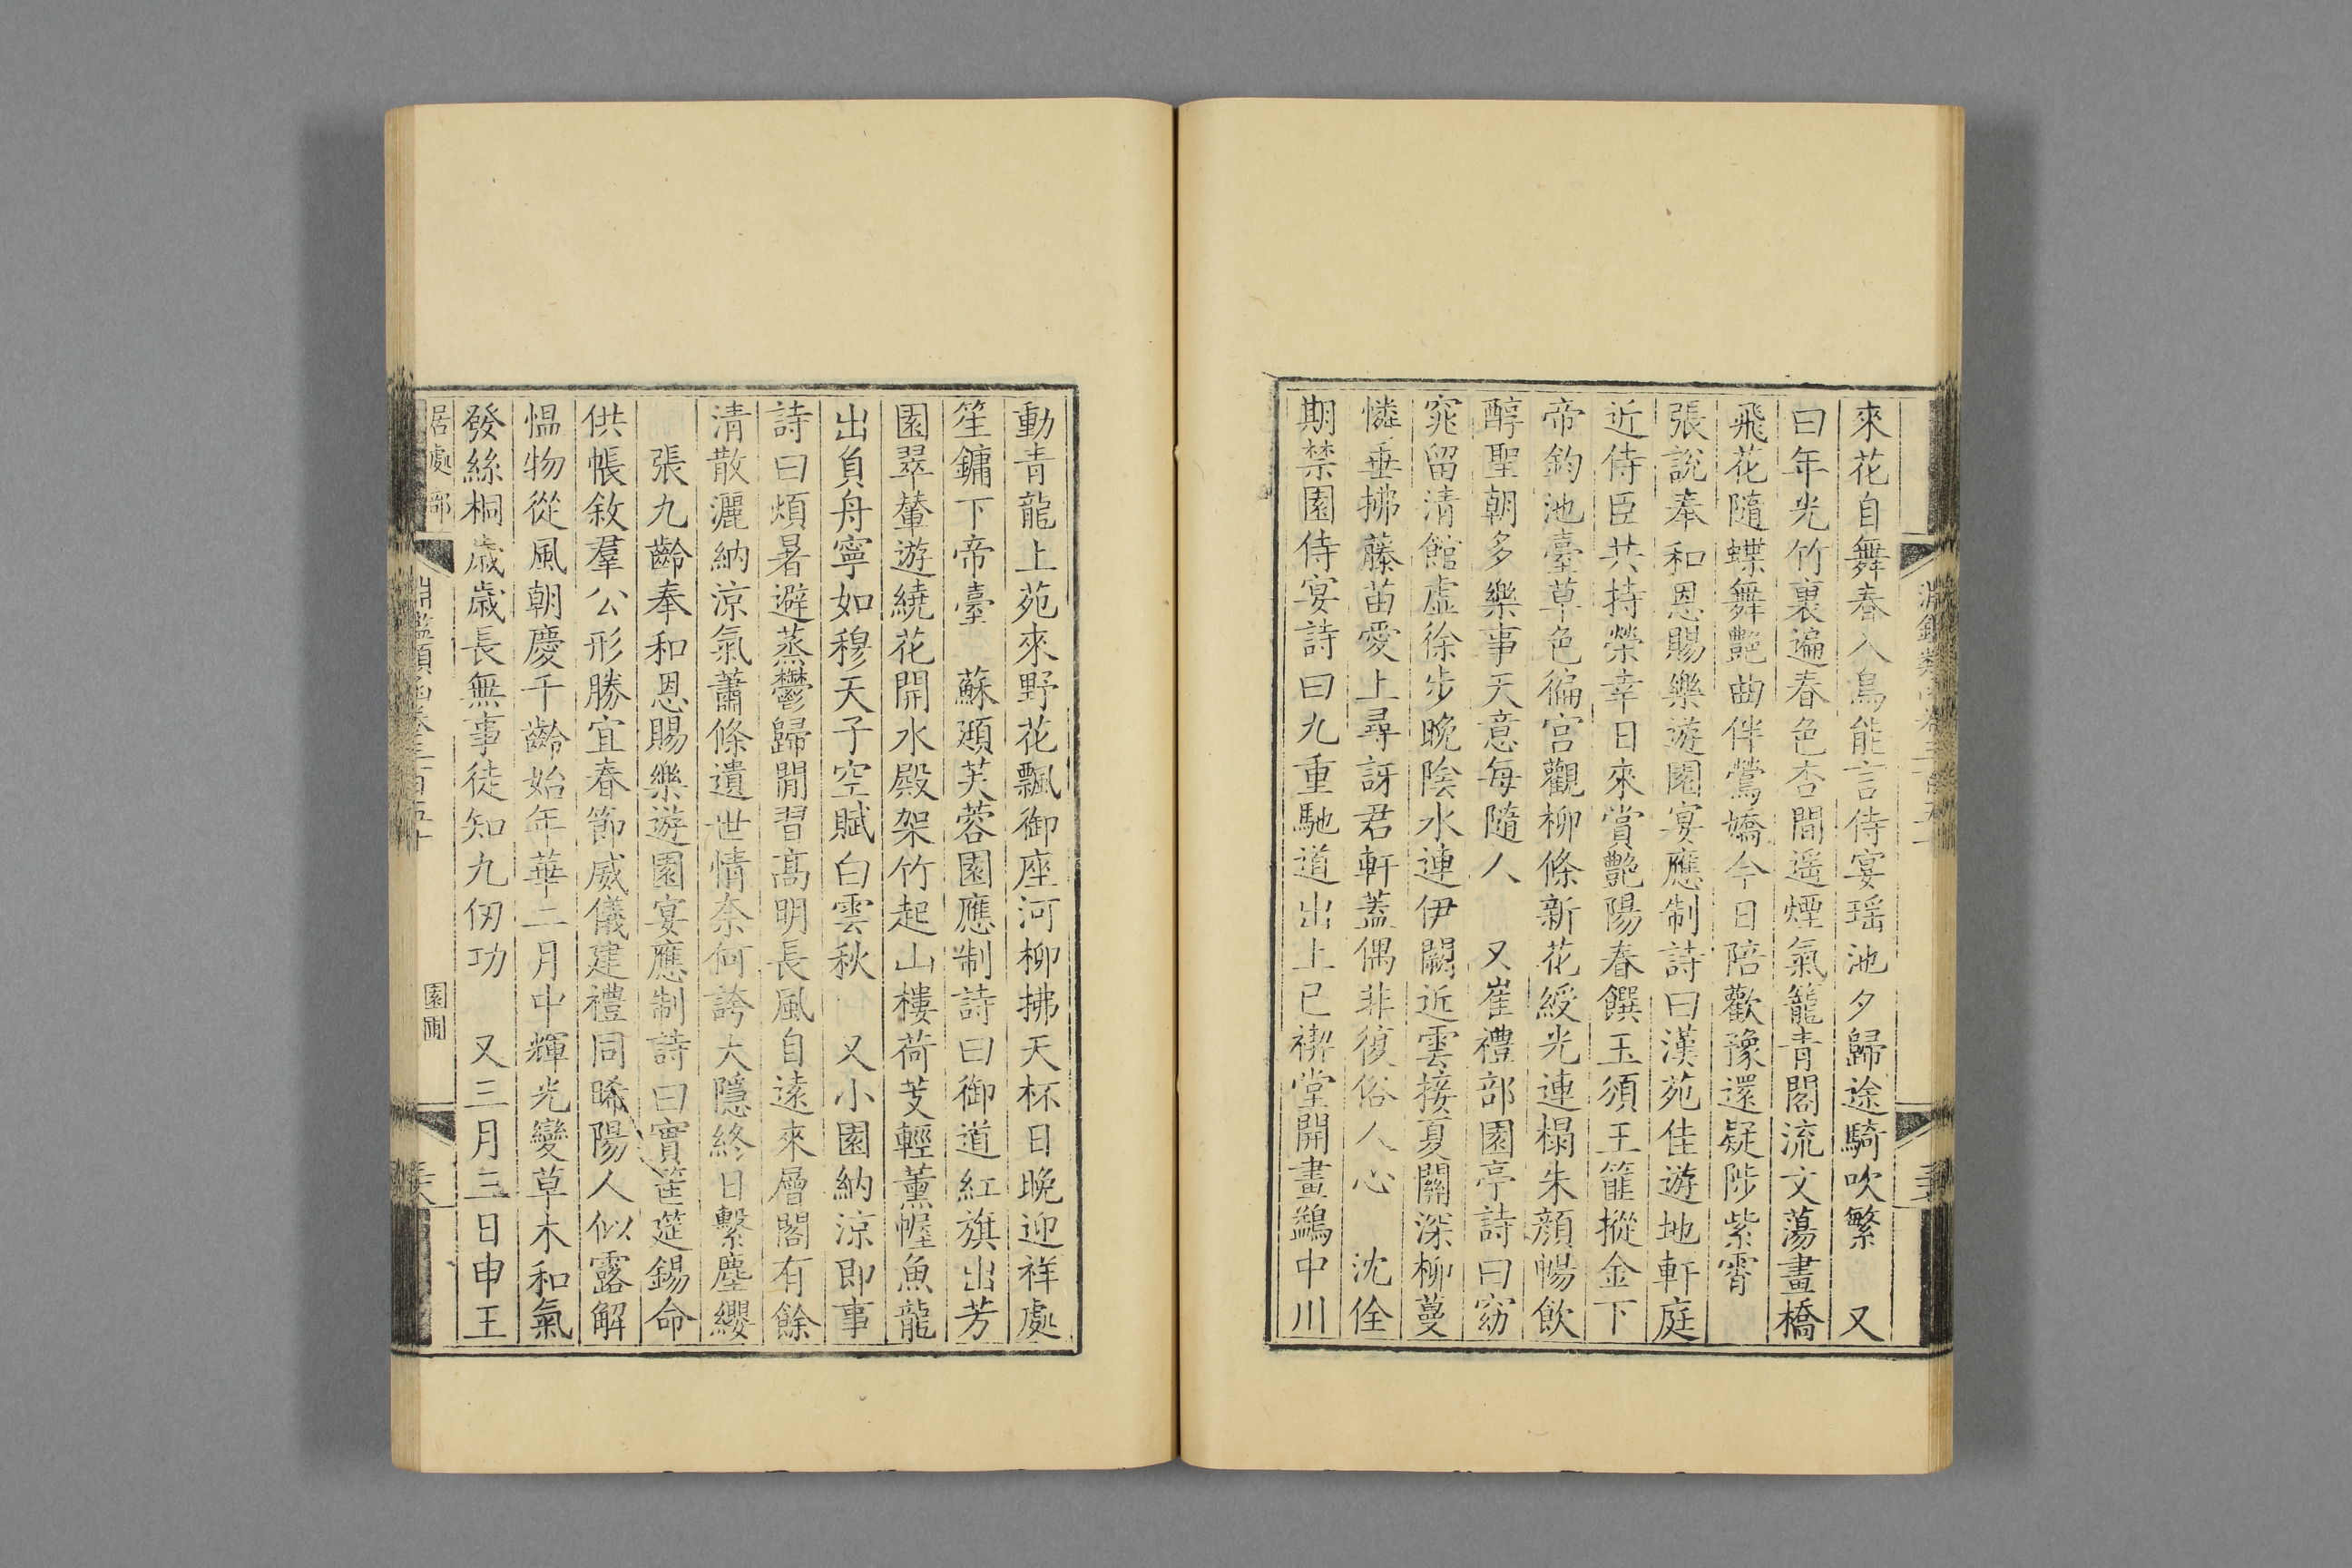 來花自舞春入鳥能言侍宴瑶池夕歸途騎吹繁　又
曰年光竹裏遍春色杏間遥煙氣籠青閣流文蕩畫橋
飛花隨蝶舞艷曲伴鶯嬌今日陪歡豫還疑陟紫霄
張說奉和恩賜樂遊園宴應制詩曰漢苑佳遊地軒庭
近侍臣共持榮幸日來賞艷陽春饌玉頒王篚摐金下
帝鈞池臺草色徧宫觀柳條新花綬光連榻朱顔暢飲
醇聖朝多樂事天意每隨人　又崔禮部園亭詩曰窈
窕留清館虛徐步晚陰水連伊闕近雲接夏關深柳蔓
憐垂拂藤苗愛上尋訝君軒蓋偶非復俗人心　沈佺
期禁園侍宴詩曰九重馳道出上巳禊堂開畫鷁中川
動青龍上苑來野花飄御座河柳拂天杯日晚迎祥處
笙鏞下帝臺　蘇頲芙蓉園應制詩曰御道紅旗出芳
園翠輦遊繞花開水殿架竹起山樓荷芰輕薰幄魚龍
出負舟寧如穆天子空賦白雲秋　又小園納涼即事
詩曰煩暑避蒸鬱歸閒習高明長風自遠來層閣有餘
清散灑納涼氣蕭條遺世情奈何誇大隱終日繫塵纓
張九齡奉和恩賜樂遊園宴應制詩曰寶筵錫命
供帳敘羣公形勝宜春節威儀建禮同晞陽人似露解
愠物從風朝慶千齡始年華二月中輝光變草木和氣
發絲桐歲歲長無事徒知九仞功　又三月三日申王
居處部
園圃